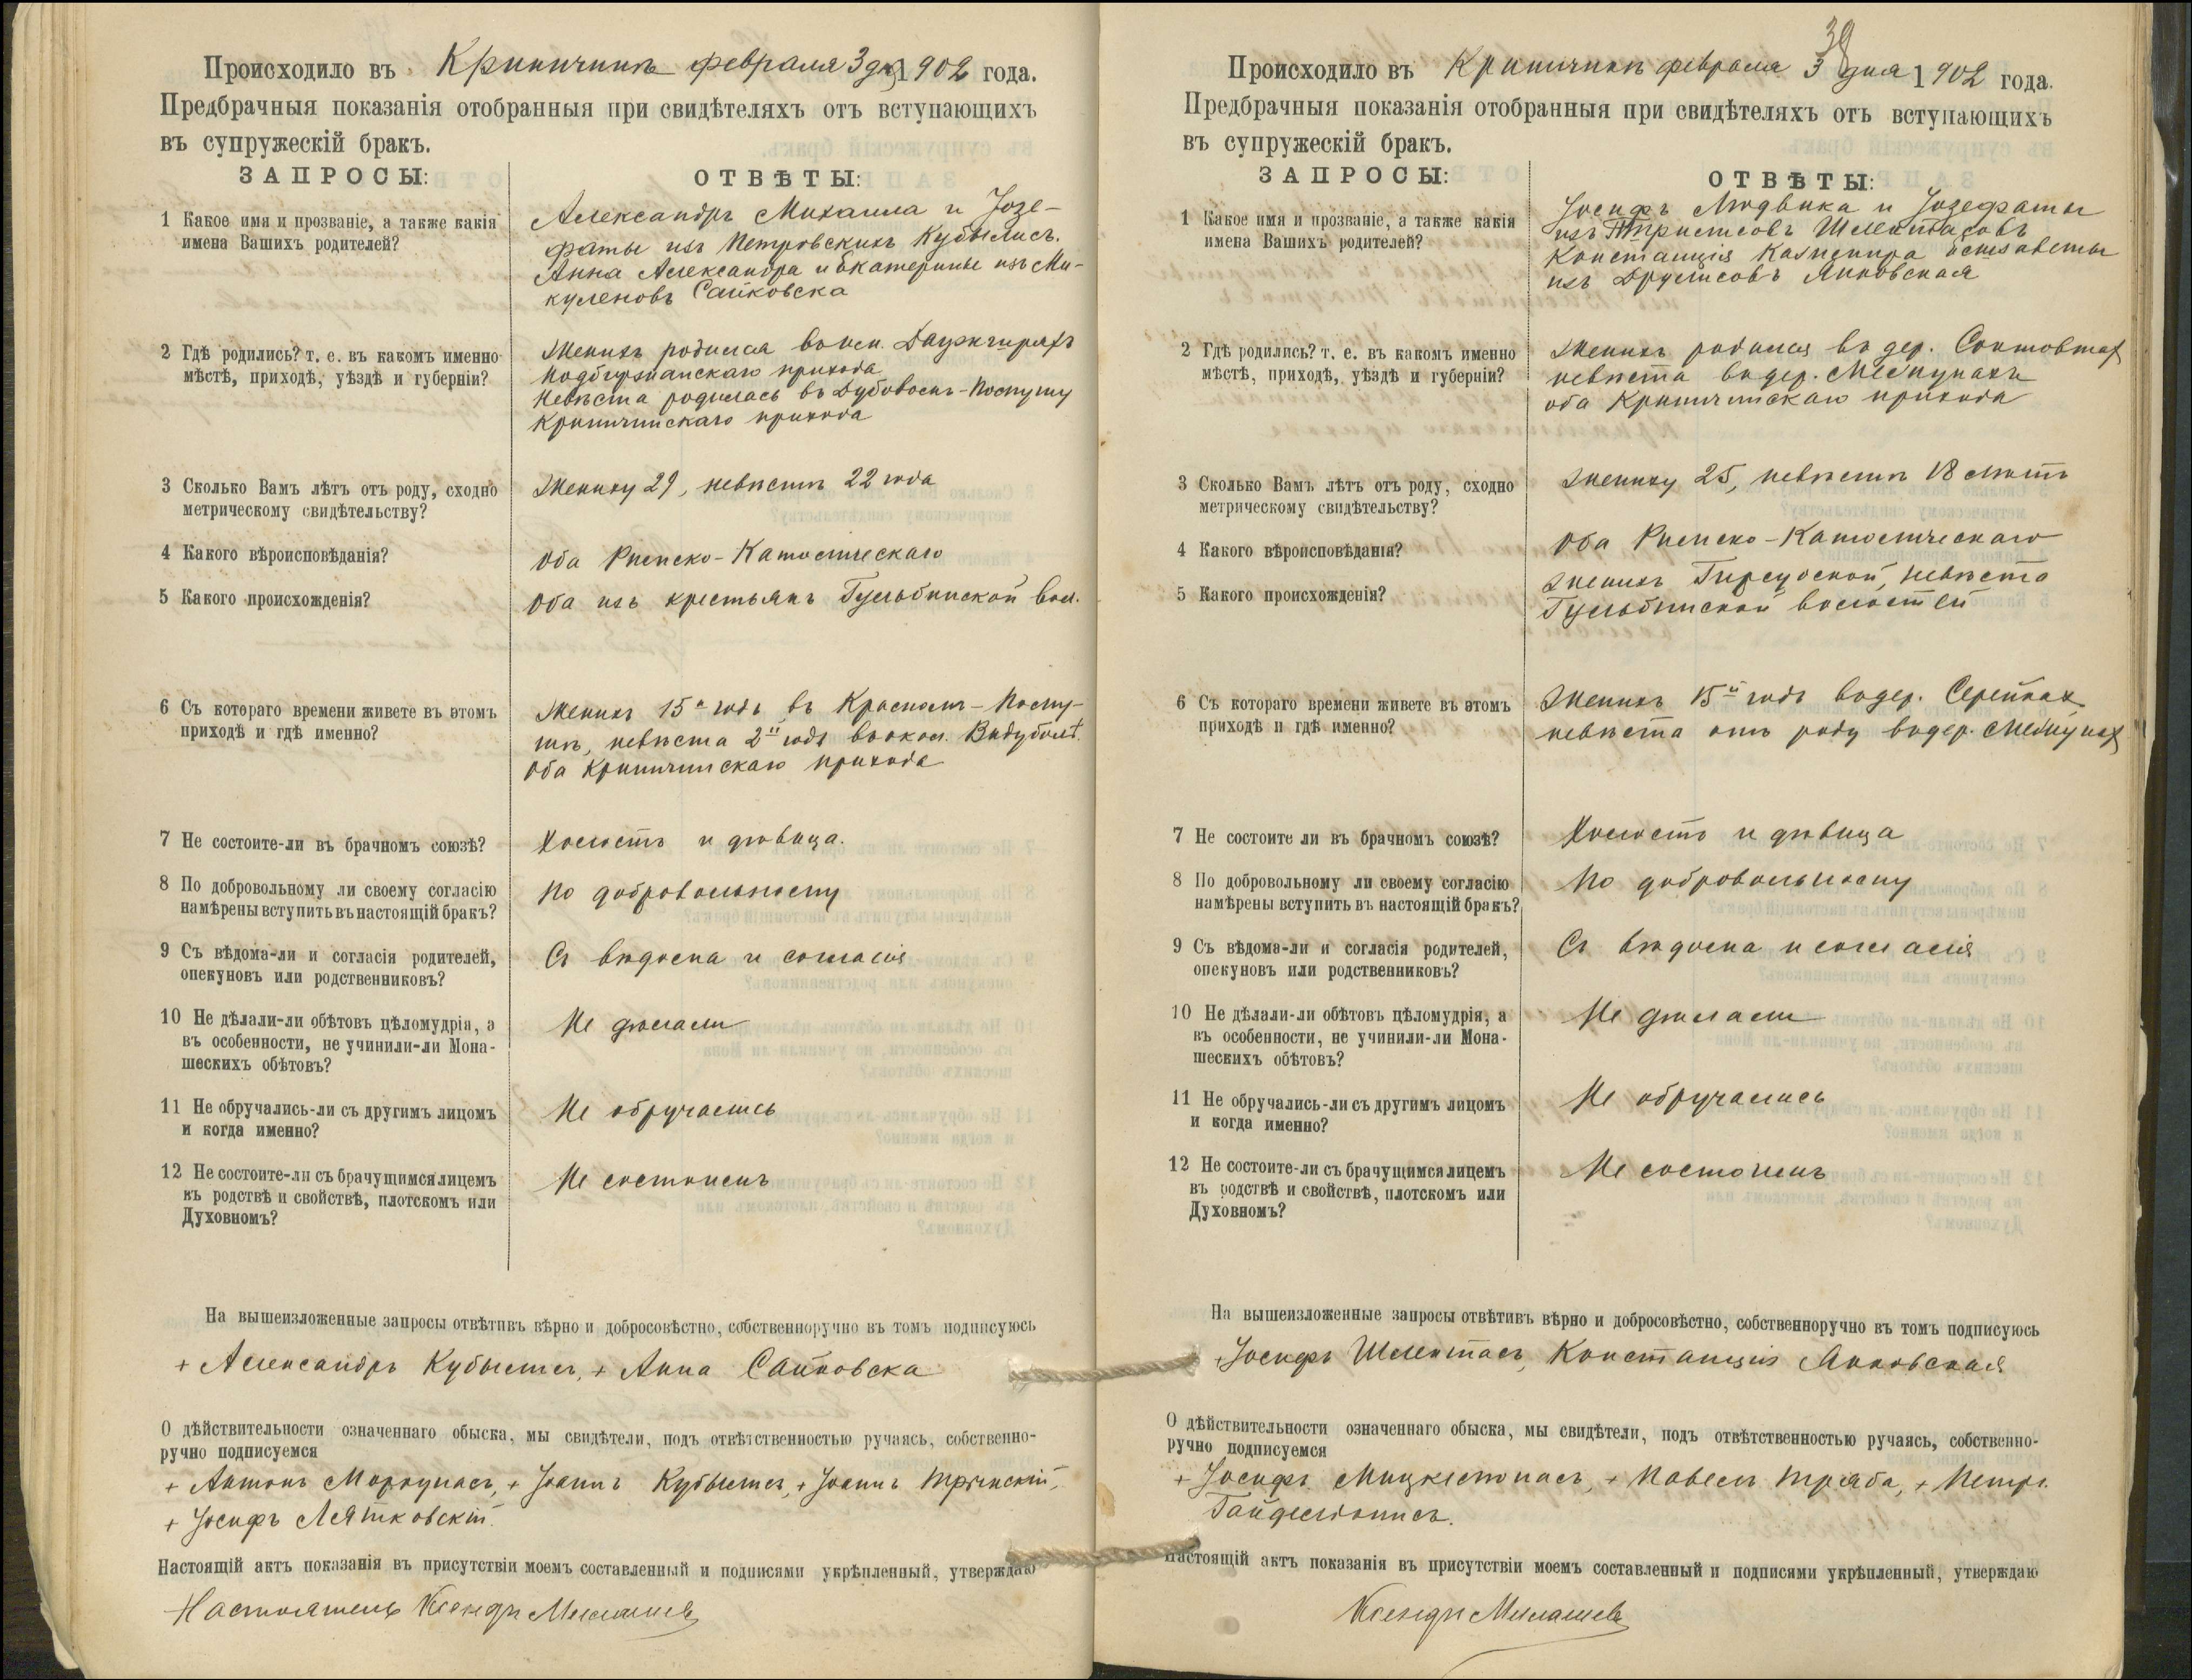 Происходило въ Криничинѣ февраля 3 дня 1902 года.
Предбрачныя показанія отобранныя при свидѣтеляхъ отъ вступающихъ
въ супружескій бракъ.
ЗАПРОСЫ:
ОТВѢТЫ:
1 Какое имя и прозваніе, а также какія
имена Вашихъ родителей?
Александръ Михаила и Іозе-
фаты изъ Петровскихъ Кубылисъ.
Анна Александра и Екатерины изъ Ми-
куленовъ Сайковска
2 Гдѣ родились? т. е. въ какомъ именно
мѣстѣ, приходѣ, уѣздѣ и губерніи?
Женихъ родился
прихода
Невѣста родилась въ Дубовомъ-Поспушу
Криничинскаго прихода
3 Сколько Вамъ лѣтъ отъ роду, сходно
метрическому свидѣтельству?
Жениху 29, невѣстѣ 22 года
4 Какого вѣроисповѣданія?
Оба Римско-Католическаго
5 Какого происхожденія?
Оба изъ крестьянъ Гульбинской вол.
6 Съ котораго времени живете въ этомъ
приходѣ и гдѣ именно?
Женихъ 15й годъ въ Красномъ-Поспу-
шѣ, невѣста 2й годъ въ окол.
Оба Криничинскаго прихода
7 Не состоите-ли въ брачномъ союзѣ?
Холостъ и дѣвица.
8 По добровольному ли своему согласію
намѣрены вступить въ настоящій бракъ?
По добровольному
9 Съ вѣдома-ли и согласія родителей,
опекуновъ или родственниковъ?
Съ вѣдома и согласія
10 Не дѣлали-ли обѣтовъ цѣломудрія, а
въ особенности, не учинили-ли Мона-
шескихъ обѣтовъ?
Не дѣлали
11 Не обручались-ли съ другимъ лицомъ
и когда именно?
Не обручались
12 Не состоите-ли съ брачущимся лицемъ
въ родствѣ и свойствѣ, плотскомъ или
Духовномъ?
Не состоимъ
На вышеизложенные запросы отвѣтивъ вѣрно и добросовѣстно, собственноручно въ томъ подписуюсь
+ Александръ Кубылисъ, + Анна Сайковска
О дѣйствительности означеннаго обыска, мы свидѣтели, подъ отвѣтственностью ручаясь, собственно-
ручно подписуемся
+ Антонъ Моркунасъ, + Іоаннъ Кубылисъ, + Іоаннъ
+ Іосифъ Лятковскій.
Настоящій актъ показанія въ присутствіи моемъ составленный и подписями укрѣпленный, утверждаю
Настоятель Ксендзъ
39
Происходило въ Криничинѣ февраля 3 дня 1902 года.
Предбрачныя показанія отобранныя при свидѣтеляхъ отъ вступающихъ
въ супружескій бракъ.
ЗАПРОСЫ:
ОТВѢТЫ:
1 Какое имя и прозваніе, а также какія
имена Вашихъ родителей?
Іосифъ Людвика и Іозефаты
изъ
Констанція Казимира Елизаветы
изъ Янковская
2 Гдѣ родились? т. е. въ какомъ именно
мѣстѣ, приходѣ, уѣздѣ и губерніи?
Женихъ родился въ дер.
невѣста въ дер. Межунахъ
оба Криничинскаго прихода
3 Сколько Вамъ лѣтъ отъ роду, сходно
метрическому свидѣтельству?
Жениху 25, невѣстѣ 18 лѣтъ
4 Какого вѣроисповѣданія?
Оба Римско-Католическаго
5 Какого происхожденія?
Женихъ Гирсудской, невѣста
Гульбинской волостей
6 Съ котораго времени живете въ этомъ
приходѣ и гдѣ именно?
Женихъ 15й годъ въ дер. Серейках
невѣста отъ роду въ дер. Межунах
7 Не состоите ли въ брачномъ союзѣ?
Холостъ и дѣвица
8 По добровольному ли своему согласію
намѣрены вступить въ настоящій бракъ?
По добровольному
9 Съ вѣдома-ли и согласія родителей,
опекуновъ или родственниковъ?
Съ вѣдома и согласія
10 Не дѣлали-ли обѣтовъ цѣломудрія, а
въ особенности, не учинили-ли Мона-
шескихъ обѣтовъ?
Не дѣлали
11 Не обручались-ли съ другимъ лицомъ
и когда именно?
Не обручались
12 Не состоите-ли съ брачущимся лицемъ
въ родствѣ и свойствѣ, плотскомъ или
Духовномъ?
Не состоимъ
На вышеизложенные запросы отвѣтивъ вѣрно и добросовѣстно, собственноручно въ томъ подписуюсь
+ Іосифъ Шлентасъ, Констанція Янковская
О дѣйствительности означеннаго обыска, мы свидѣтели, подъ отвѣтственностью ручаясь, собственно-
ручно подписуемся
+ Іосифъ + Павелъ Тряба, + Петръ
Гайделіонисъ.
Настоящій актъ показанія въ присутствіи моемъ составленный и подписями укрѣпленный, утверждаю
Ксендзъ